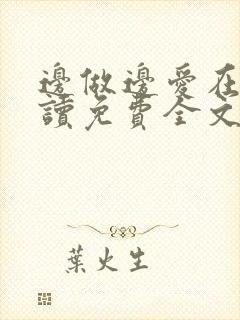 邊做邊愛在
讀免費全文
葉火生